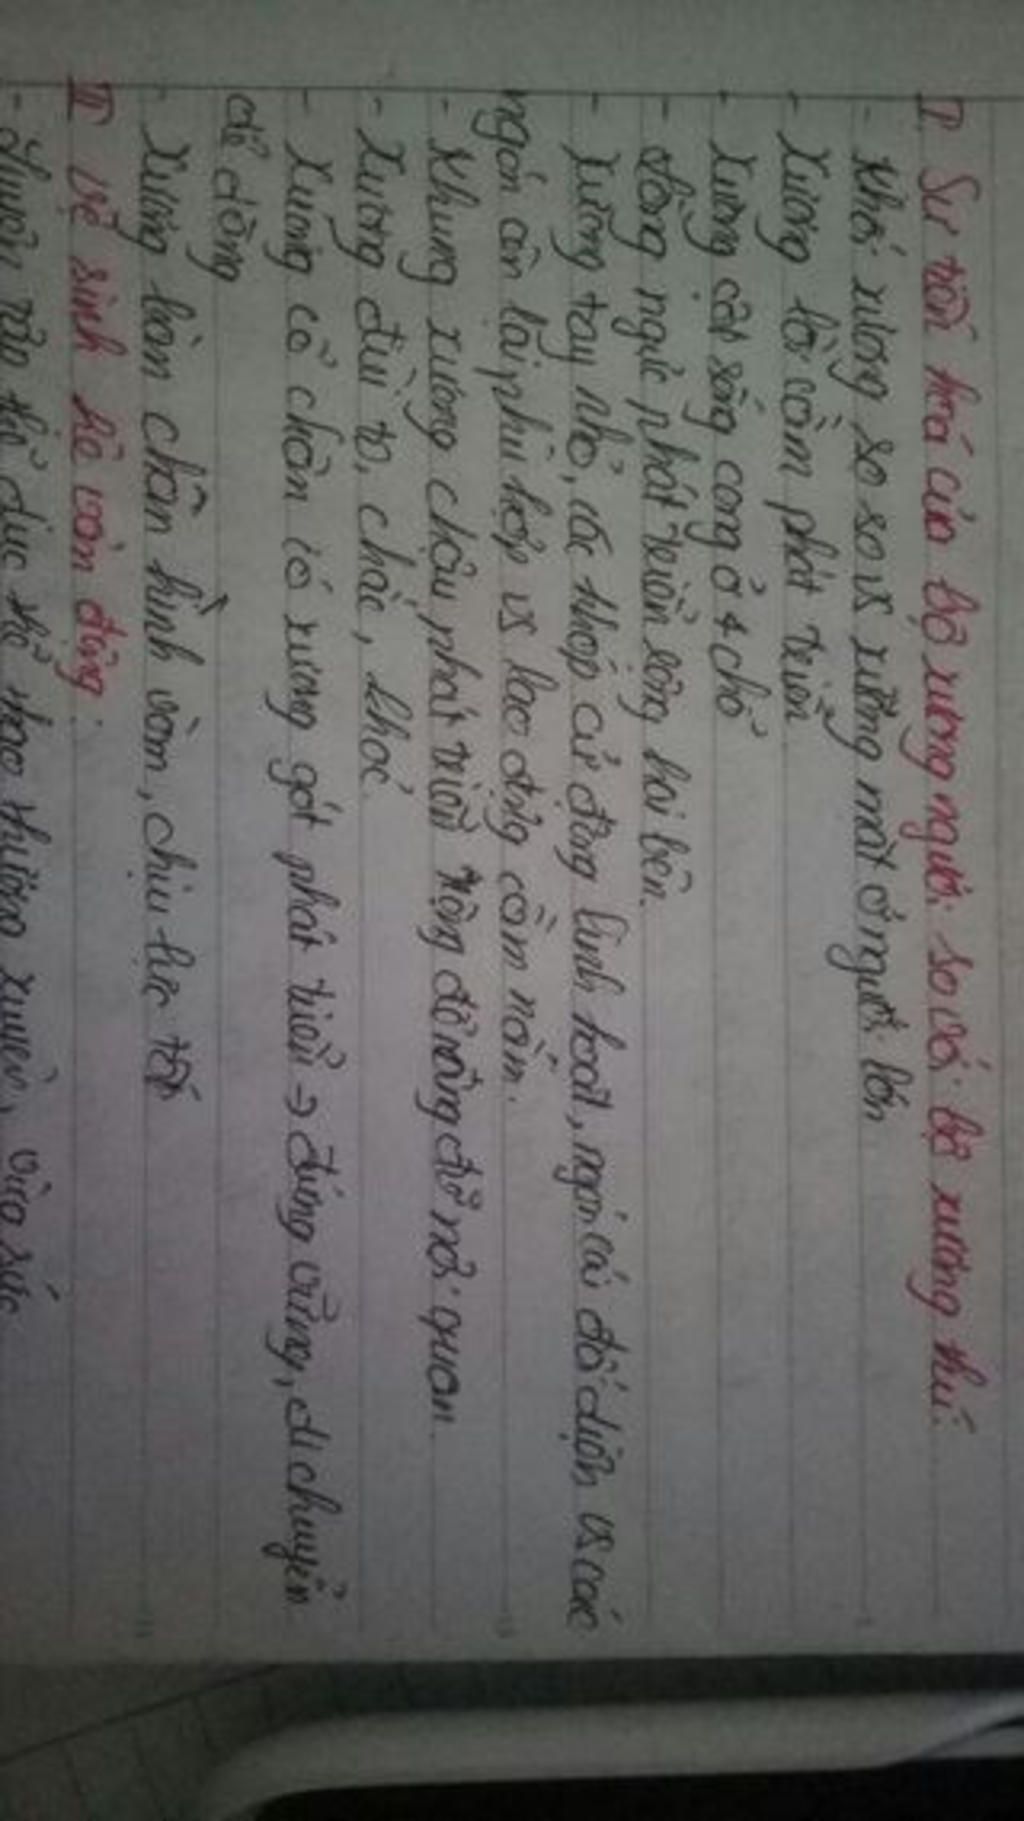 I Sự tiến hoá của bộ xương người so với bộ xương thú.
- Khối xương sọ so vs xương mặt ở người lớn
- Xương lồi cằm phát triển
- Xương cột sống cong ở 4 chỗ
- Lồng ngực phát triển sang hai bên.
- Xương tay nhỏ, các khớp cử động linh hoạt, ngón cái đối diện vs các
ngón còn lại phù hợp vs lao động cầm nắm.
- Khung xương chậu phát triển rộng để nâng đỡ nội quan.
- Xương đùi to, chắc, khoẻ
- Xương cổ chân có xương gót phát triển → đứng vững, di chuyển
dễ dàng
- Xương bàn chân hình vòm, chịu lực tốt
III Vệ sinh hệ vận động:
- thể dục thể thao thường xuyên, vừa sức